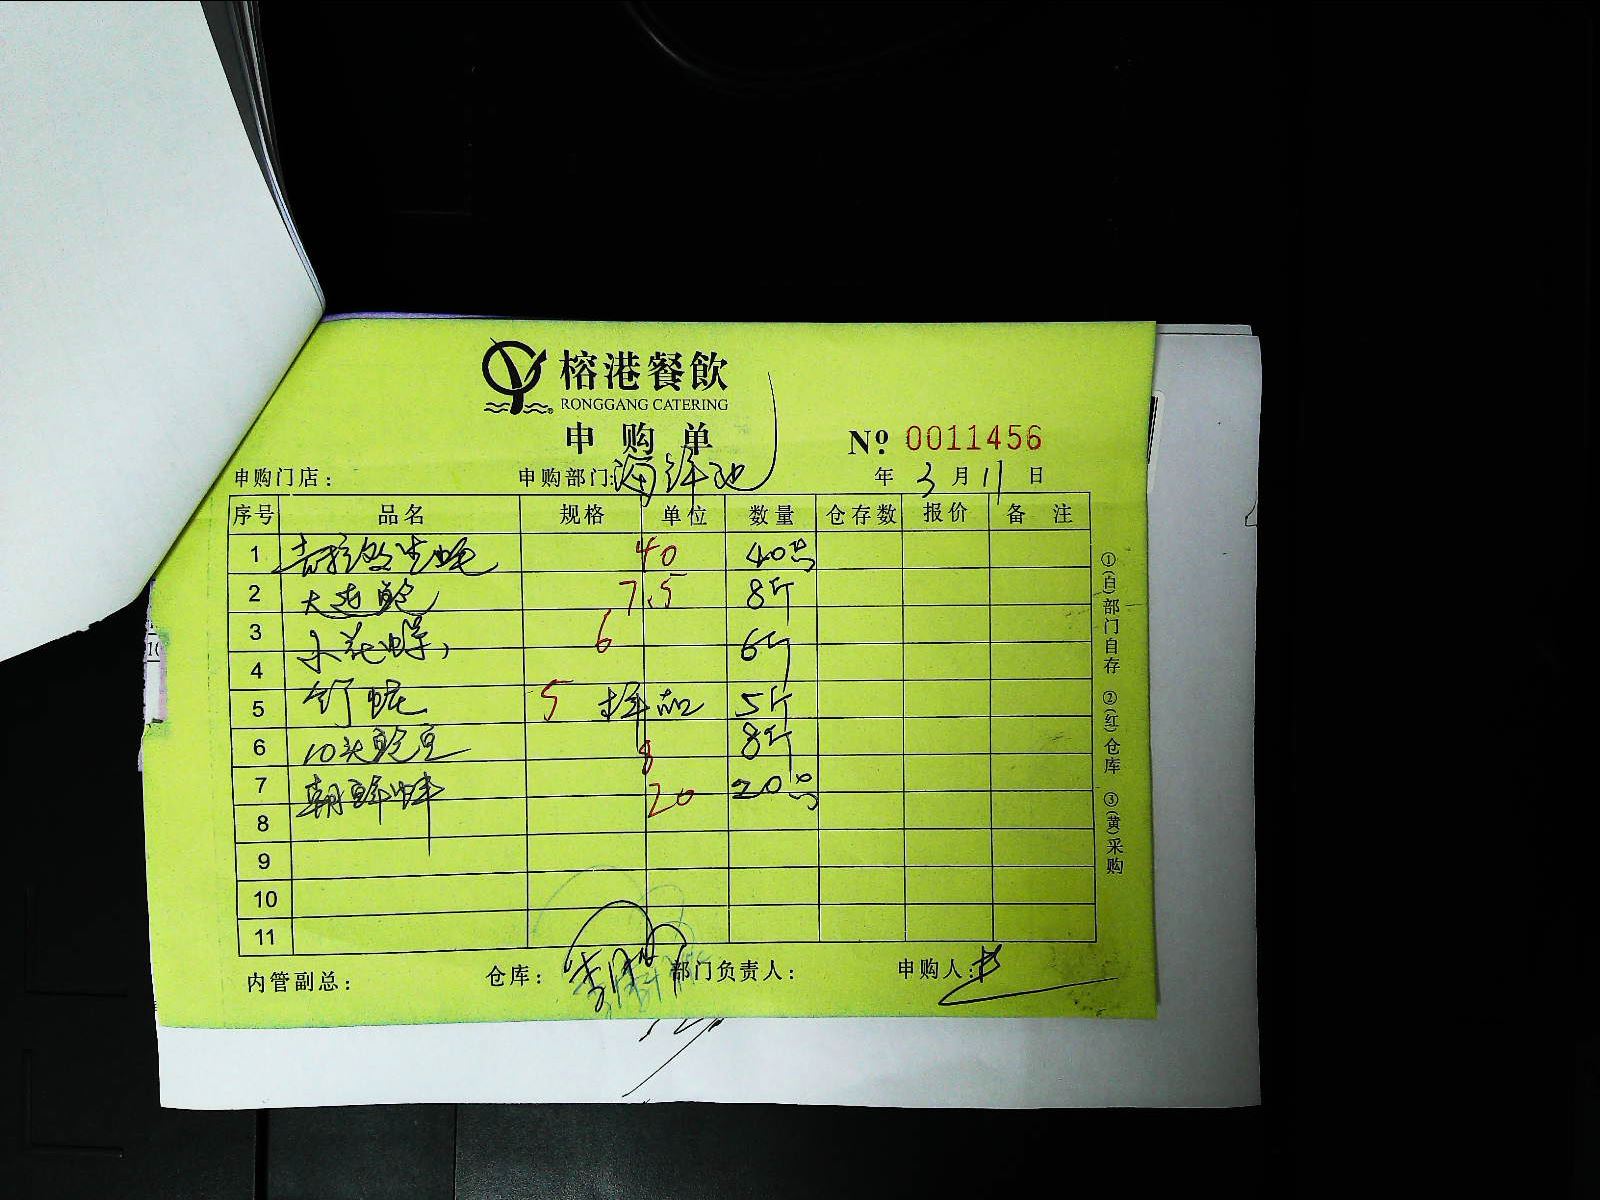 榕港餐飲
RONGGANG CATERING
申购单
№ 0011456
申购门店: 申购部门:海鲜池 年 3 月 11 日
序号 品名 规格 单位 数量 仓存数 报价 备注
1 吉拉多生蚝 40 40只
2 大连鲍 7.5 8斤
3 6 6斤
4
5 5 5斤
6 10头鲍 8 8斤
7 朝鲜蚌 20 20只
8
9
10
11
内管副总: 仓库: 部门负责人: 申购人:
①(白)部门自存 ②(红)仓库 ③(黄)采购